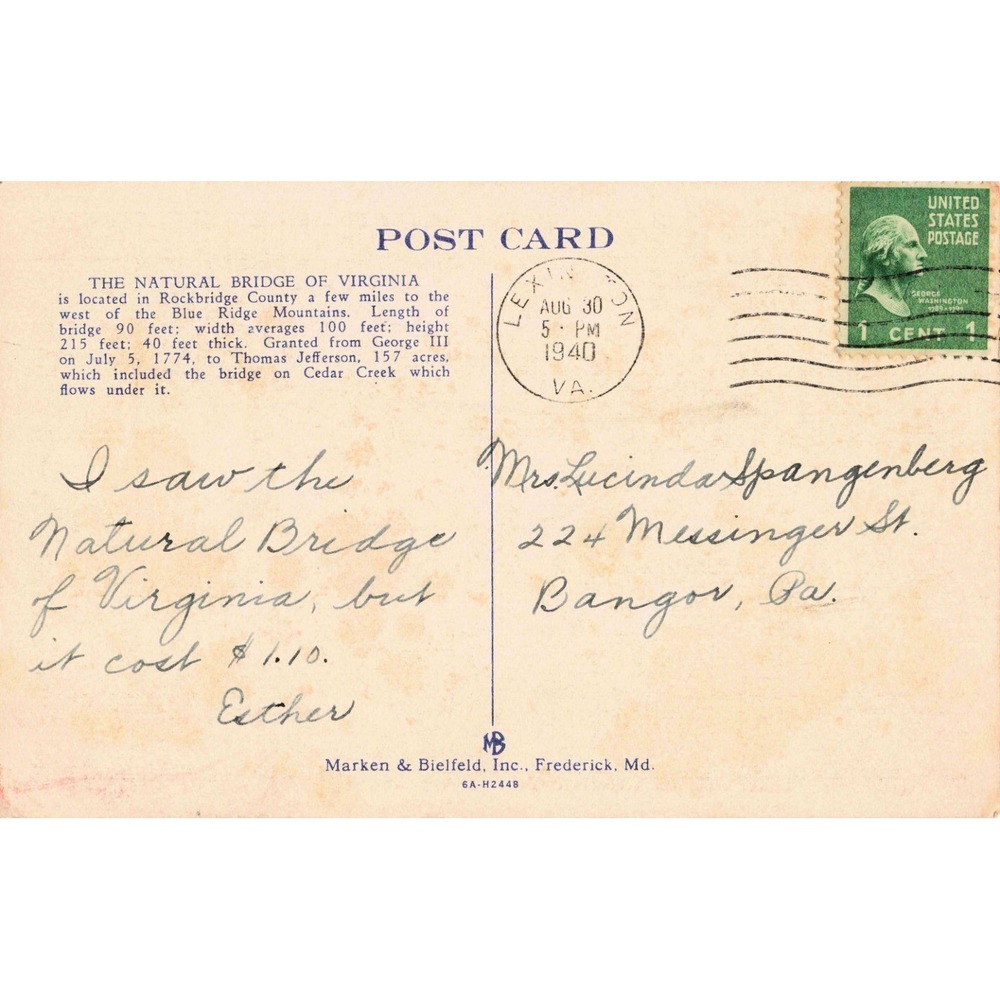 POST CARD
THE NATURAL BRIDGE OF VIRGINIA
is located in Rockbridge County a few miles to the
west of the Blue Ridge Mountains. Length of
bridge 90 feet; width averages 100 feet; height
215 feet; 40 feet thick. Granted from George III
on July 5, 1774, to Thomas Jefferson, 157 acres,
which included the bridge on Cedar Creek which
flows under it.
LEXIN TON
AUG 30
5 PM
1940
VA.
UNITED
STATES
POSTAGE
GEORGE
WASHINGTON
1 CENT 1
I saw the
Natural Bridge
of Virginia, but
it cost $1.10.
Esther
Mrs. Lucinda Spangenberg
224 Messinger St.
Bangor, Pa.
MB
Marken & Bielfeld, Inc., Frederick, Md.
6A-H2448